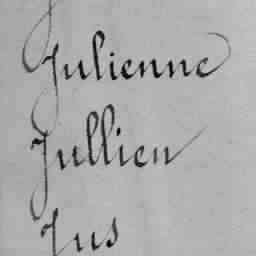 Julienne
Jullien
Jus